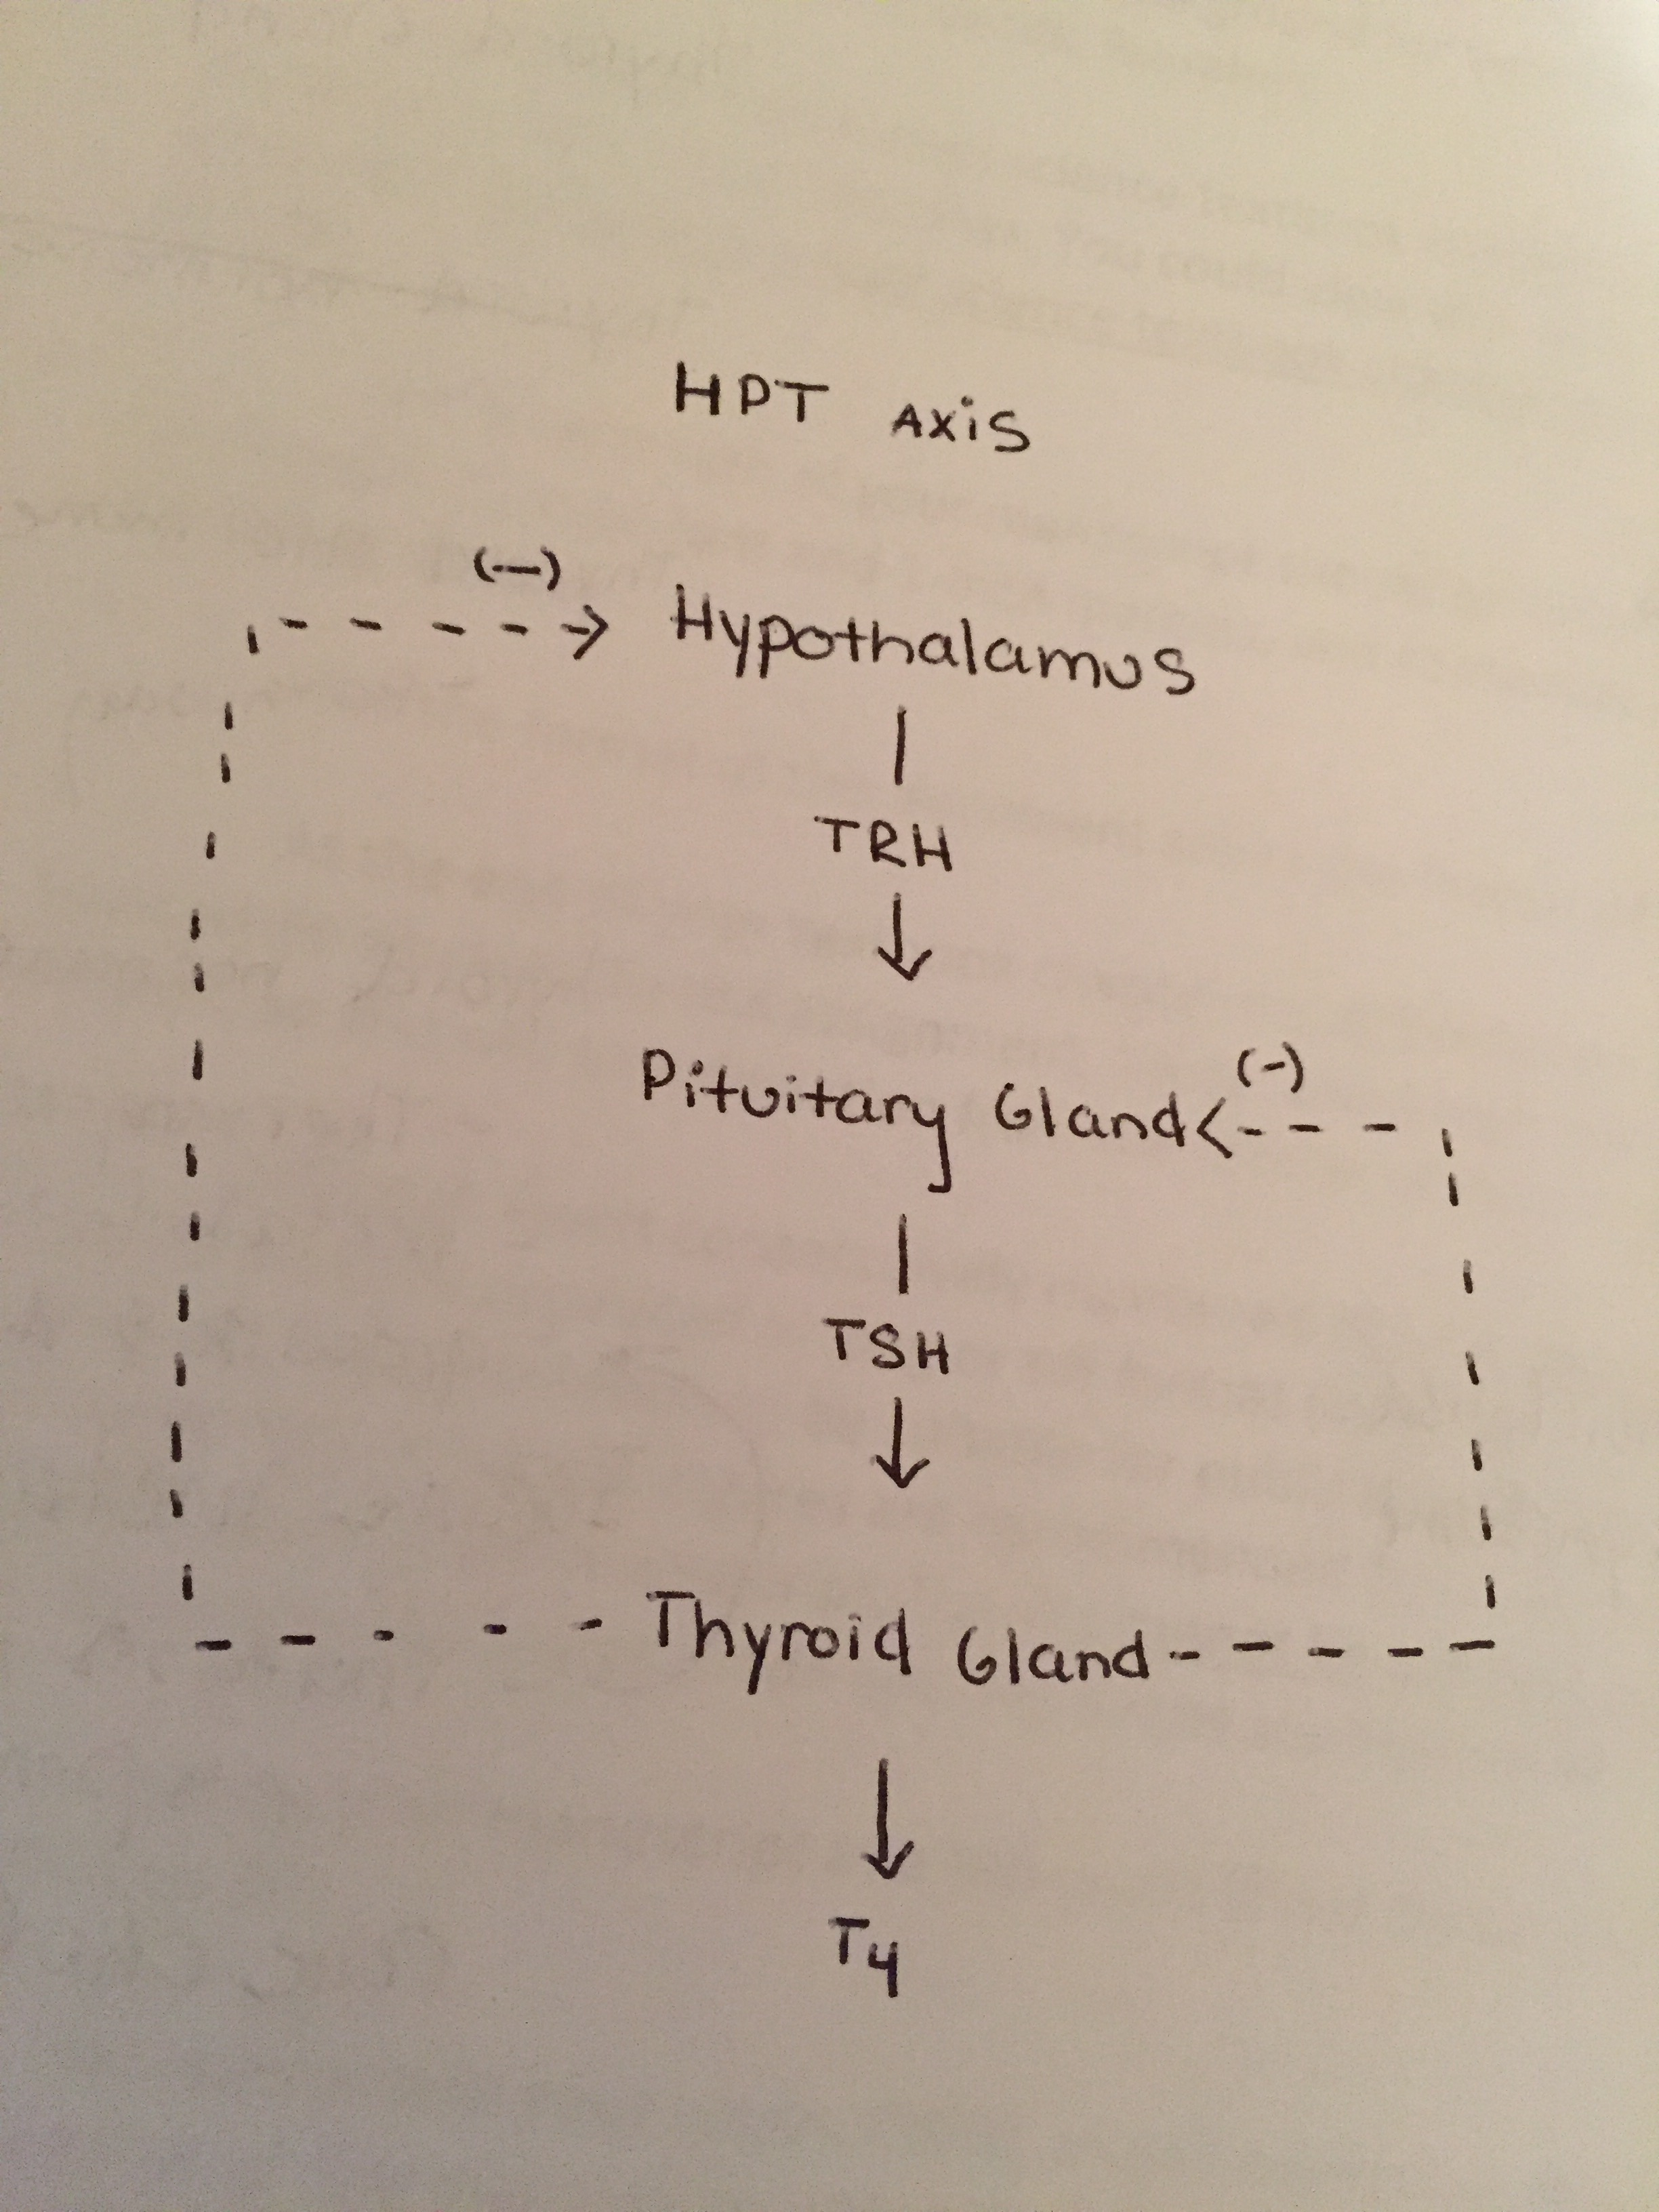 HPT AXiS
(-)
Hypothalamus
TRH
(-)
Pituitary Gland
TSH
Thyroid Gland
T4